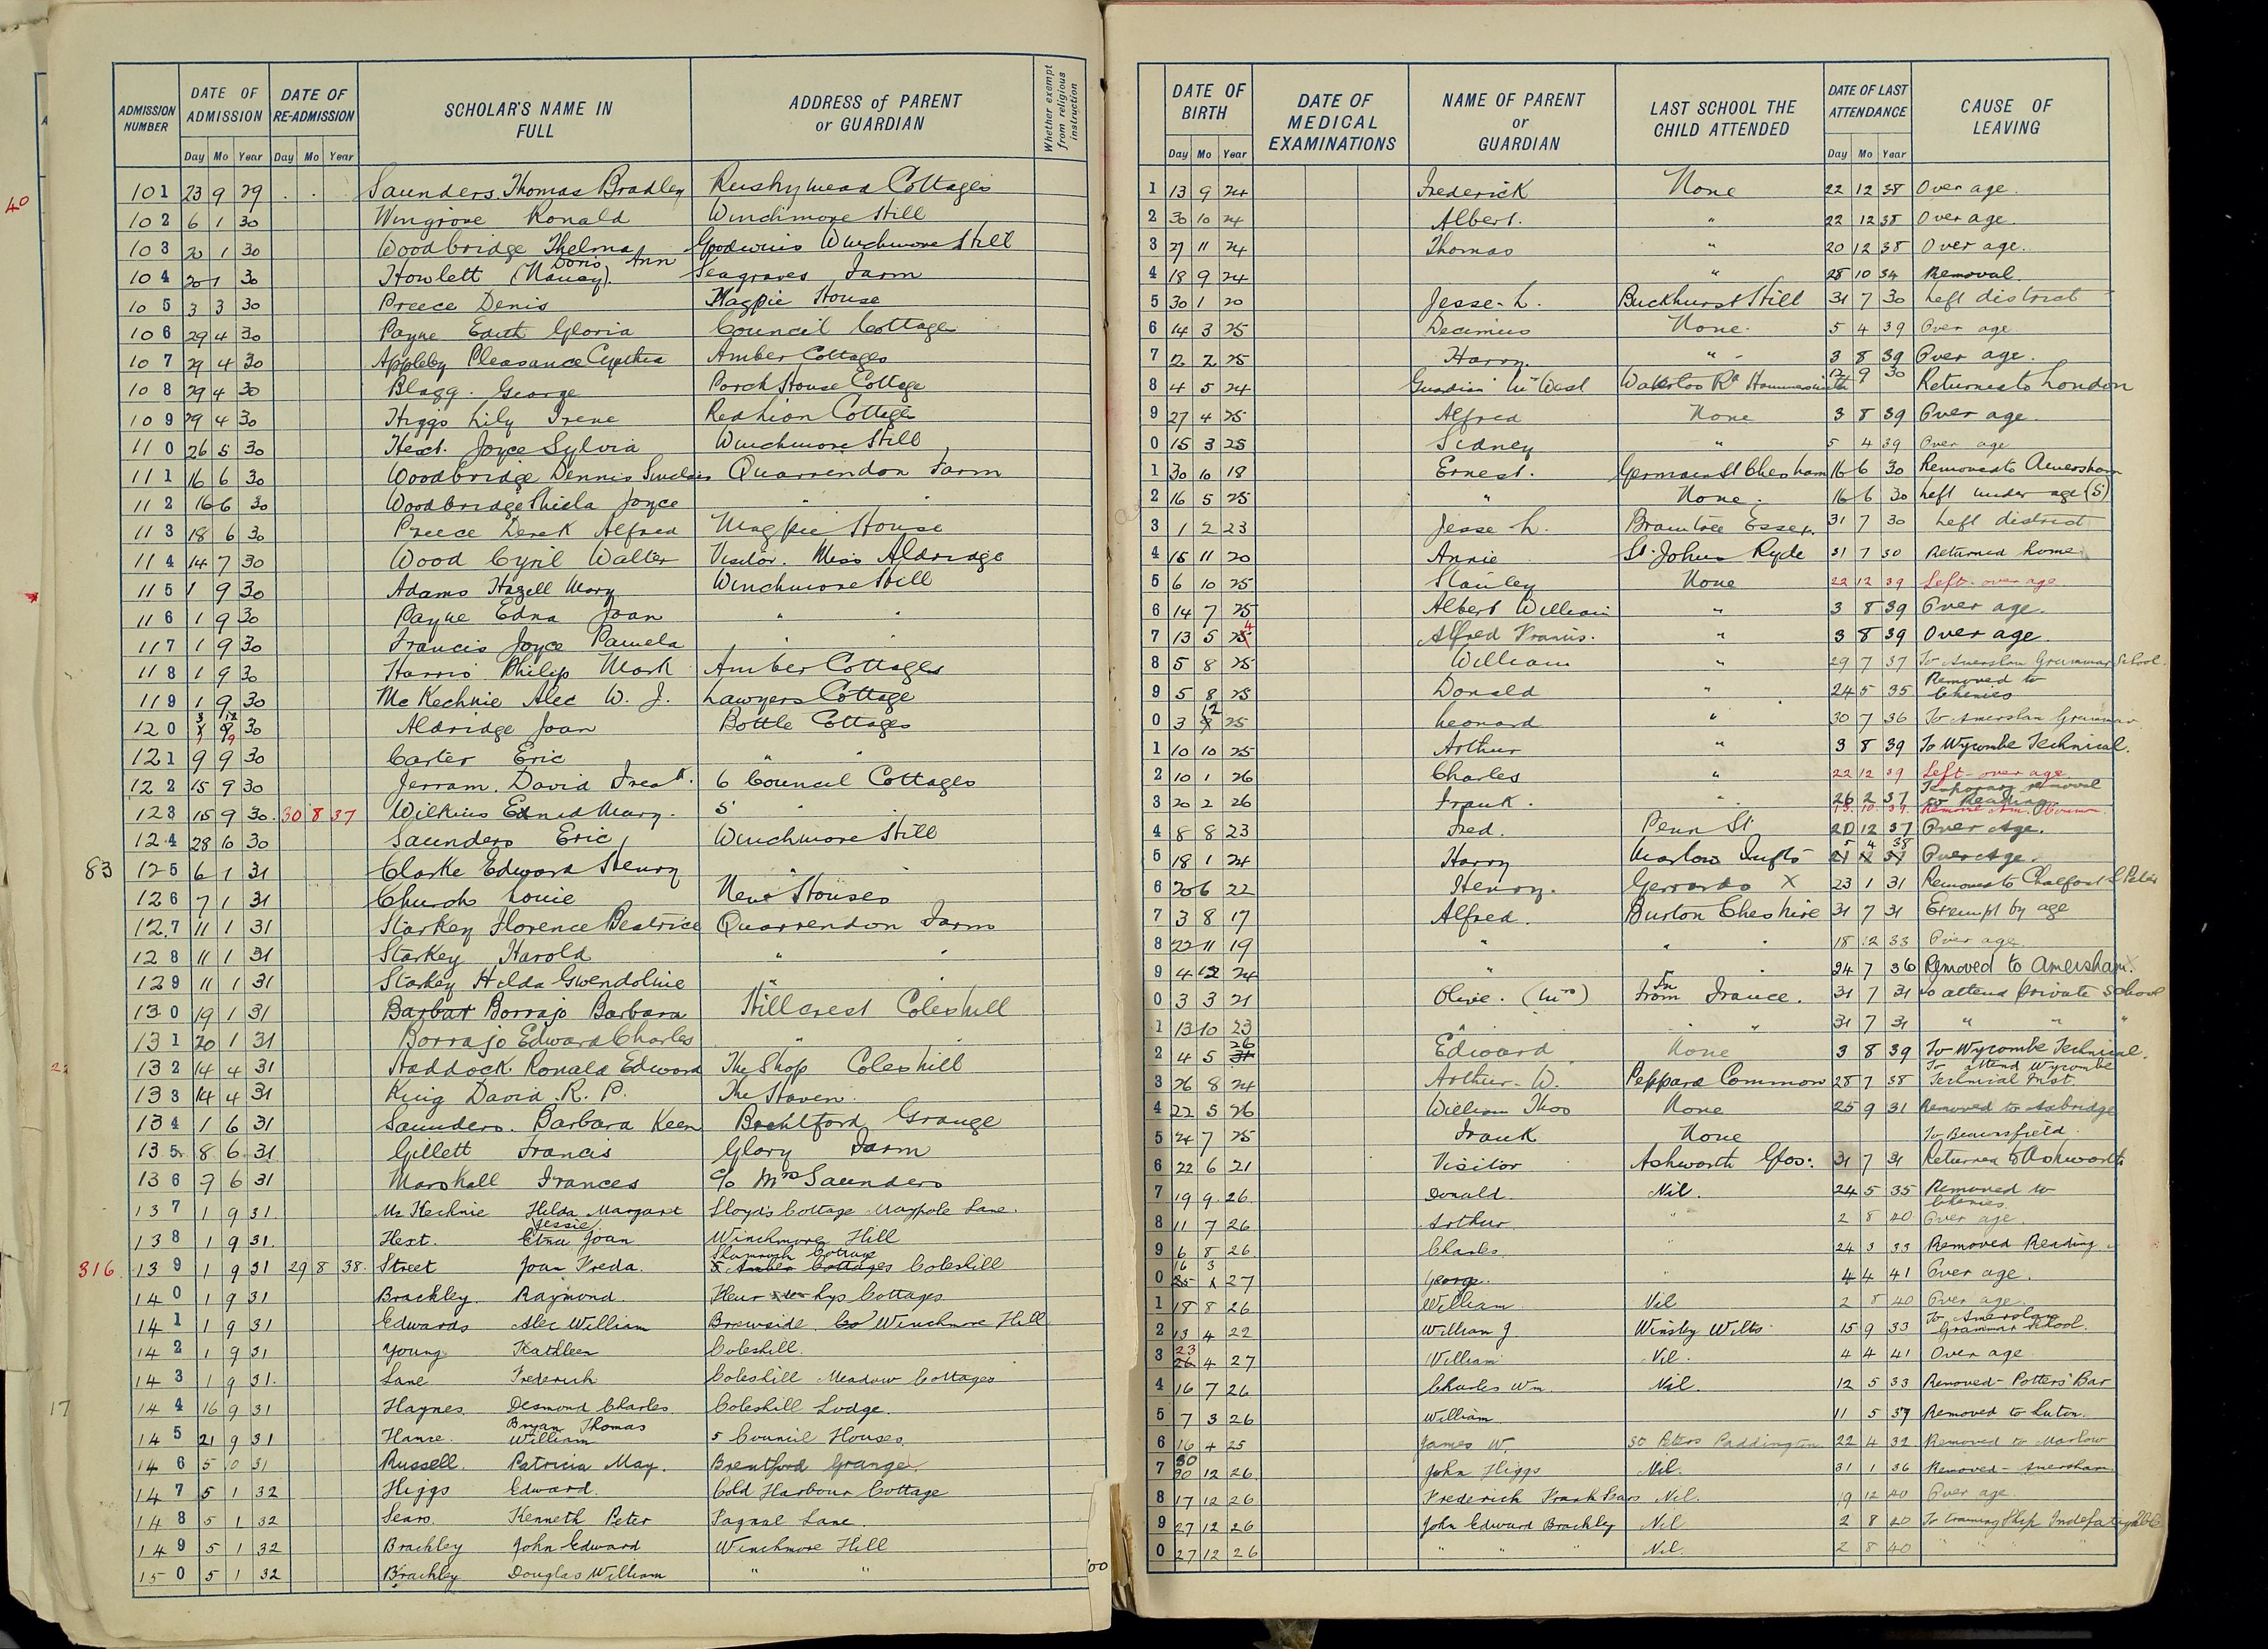 ADMISSION NUMBER DATE OF ADMISSION DATE OF RE-ADMISSION SCHOLAR'S NAME IN FULL ADDRESS of PARENT or GUARDIAN Whether exempt from religious instruction
Day Mo Year Day Mo Year
40
101 23 9 29 Saunders. Thomas Bradley Rushymead Cottages
102 6 1 30 Wingrove Ronald Winchmore Hill
103 20 1 30 Woodbridge Thelma Goodwins Winchmore Hill
Doris Ann
104 20 1 30 Howlett (Nancy). Seagraves Farm
105 3 3 30 Preece Denis Magpie House
106 29 4 30 Payne Edith Gloria Council Cottages
107 29 4 30 Appleby Pleasance Cynthia Amber Cottages
108 29 4 30 Blagg. George Porch House Cottage
109 29 4 30 Higgs Lily Irene Red Lion Cottages
110 26 5 30 Hext. Joyce Sylvia Winchmore Hill
111 16 6 30 Woodbridge Dennis Sinclair Quarrendon Farm
112 16 6 30 Woodbridge Shiela Joyce " "
113 18 6 30 Preece Derek Alfred Magpie House
114 14 7 30 Wood Cyril Walter Visitor. Miss Aldridge
115 1 9 30 Adams Hazell Mary Winchmore Hill
116 1 9 30 Payne Edna Joan " "
117 1 9 30 Francis Joyce Pamela " "
118 1 9 30 Harris Philip Mark Amber Cottages
119 1 9 30 McKechnie Alec W. J. Lawyers Cottage
3 12
120 30 Aldridge Joan Bottle Cottages
121 9 9 30 Carter Eric " "
122 15 9 30 Jerram. David 6 Council Cottages
123 15 9 30 30 8 37 Wilkins Enid Mary. 5 "
124 28 10 30 Saunders Eric Winchmore Hill
83 125 6 1 31 Clarke Edward Henry "
126 7 1 31 Church Louie New Houses
127 11 1 31 Starkey Florence Beatrice Quarrendon Farm
128 11 1 31 Starkey Harold " "
129 11 1 31 Starkey Hilda Gwendoline " "
130 19 1 31 Barbar Borrajo Barbara Hillcrest Coleshill
131 20 1 31 Borrajo Edward Charles " "
132 14 4 31 Haddock. Ronald Edward The Shop Coleshill
133 14 4 31 King David R. P. The Haven.
134 1 6 31 Saunders. Barbara Keen Grange
135 8 6 31 Gillett Francis Glory Farm
136 7 6 31 Marshall Frances c/o Mrs Saunders
137 1 9 31 McKechnie Hilda Margaret Lloyd's Cottage Magpole Lane.
Jessie
138 1 9 31. Hext. Edna Joan Winchmore Hill
Shamrock Cottage
316 139 1 9 31 29 8 38 Street Joan Freda. 5 Amber Cottages Coleshill
140 1 9 31 Brackley Raymond. Fleur de Lys Cottages
141 1 9 31 Edwards Alec William Brewside Winchmore Hill
142 1 9 31 Young Kathleen Coleshill.
143 1 9 31. Lane Frederick Coleshill Meadow Cottages
17 144 16 9 31 Haynes Desmond Charles. Coleshill Lodge.
Bryan Thomas
145 21 9 31 Hance. William 5 Council Houses.
146 5 0 31 Russell. Patricia May. Brentford Grange.
147 5 1 32 Higgs Edward. Cold Harbour Cottage
148 5 1 32 Sears. Kenneth Peter Fagnal Lane.
149 5 1 32 Brackley John Edward Winchmore Hill
150 5 1 32 Brackley Douglas William " "
DATE OF BIRTH DATE OF MEDICAL EXAMINATIONS NAME OF PARENT or GUARDIAN LAST SCHOOL THE CHILD ATTENDED DATE OF LAST ATTENDANCE CAUSE OF LEAVING
Day Mo Year Day Mo Year
1 13 9 24 Frederick None 22 12 38 Over age.
2 30 10 24 Albert. " 22 12 38 Over age.
3 27 11 24 Thomas " 20 12 38 Over age.
4 18 9 24 " 28 10 34 Removal.
5 30 1 20 Jesse L. Buckhurst Hill 31 7 30 Left district
6 14 3 25 Decimus None. 5 4 39 Over age.
7 2 2 25 Harry. " 3 8 39 Over age.
8 4 5 24 Guardian Mrs West Waterloo Rd Hammersmith 12 9 30 Returned to London
9 27 4 25 Alfred None 3 8 39 Over age.
0 15 3 25 Sidney " 5 4 39 Over age
1 30 10 18 Ernest. Germain St Chesham 16 6 30 Removed to Amersham
2 16 5 25 " None. 16 6 30 Left under age (5)
3 1 2 23 Jesse L. Braintree Essex. 31 7 30 Left district
4 15 11 20 Annie St. Johns Ryde 31 7 30 Returned home
5 6 10 25 Stanley None 22 12 39 Left over age
6 14 7 25 Albert William " 3 8 39 Over age.
4
7 13 5 25 Alfred Francis. " 3 8 39 Over age.
8 5 8 25 William " 29 7 37 To Amersham Grammar School.
9 5 8 25 Donald " 24 5 35 Removed to Chenies
12
0 3 25 Leonard " 30 7 36 To Amersham Grammar
1 10 10 25 Arthur " 3 8 39 To Wycombe Technical.
2 10 1 26 Charles " 22 12 39 Left over age.
3 20 2 26 Frank. " 26 2 37 Temporary removal to Reading
4 8 8 23 Fred. Penn St. 20 12 37 Over Age.
5 4 38
5 18 1 24 Harry Marlow Infts Over Age.
6 20 6 22 Henry. Gerrards X 23 1 31 Removed to Chalfont St Peter
7 3 8 17 Alfred. Burton Cheshire 31 7 31 Exempt by age
8 22 11 19 " " 18 12 33 Over age.
9 4 12 24 " " 24 7 36 Removed to Amersham.
0 3 3 21 Olive. (Mrs) From France. 31 7 31 To attend private school
1 13 10 23 " " 31 7 31 " " "
26
2 4 5 31 Edward None 3 8 39 To Wycombe Technical.
3 26 8 24 Arthur W. Peppard Common 28 7 38 To attend Wycombe Technical Inst.
4 22 5 26 William Thos None 25 9 31 Removed to Uxbridge
5 24 7 25 Frank None To Beaconsfield.
6 22 6 21 Visitor Ashworth Glos. 31 7 31 Returned to Ashworth
7 19 9 26. Donald. Nil. 24 5 35 Removed to Chenies.
8 11 7 26 Arthur. " 2 8 40 Over age.
9 6 8 26 Charles. " 24 3 33 Removed Reading.
16 3
0 25 1 27 George. " 4 4 41 Over age.
1 18 8 26 William Nil 2 8 40 Over age.
2 13 4 22 William J Winsley Wilts. 15 9 33 To Amersham Grammar School.
23
3 26 4 27 William Nil. 4 4 41 Over age
4 16 7 26 Charles Wm. Nil. 12 5 33 Removed - Potters Bar
5 7 3 26 William 11 5 37 Removed to Luton.
6 16 4 25 James W. St Peters Paddington 22 4 32 Removed to Marlow
30
7 12 26. John Higgs Nil. 31 1 36 Removed - Amersham
8 17 12 26 Frederick Frank Sears Nil. 19 12 40 Over age.
9 27 12 26 John Edward Brackley Nil 2 8 40 To training Ship Indefatigable
0 27 12 26 " " " Nil. 2 8 40 " " "